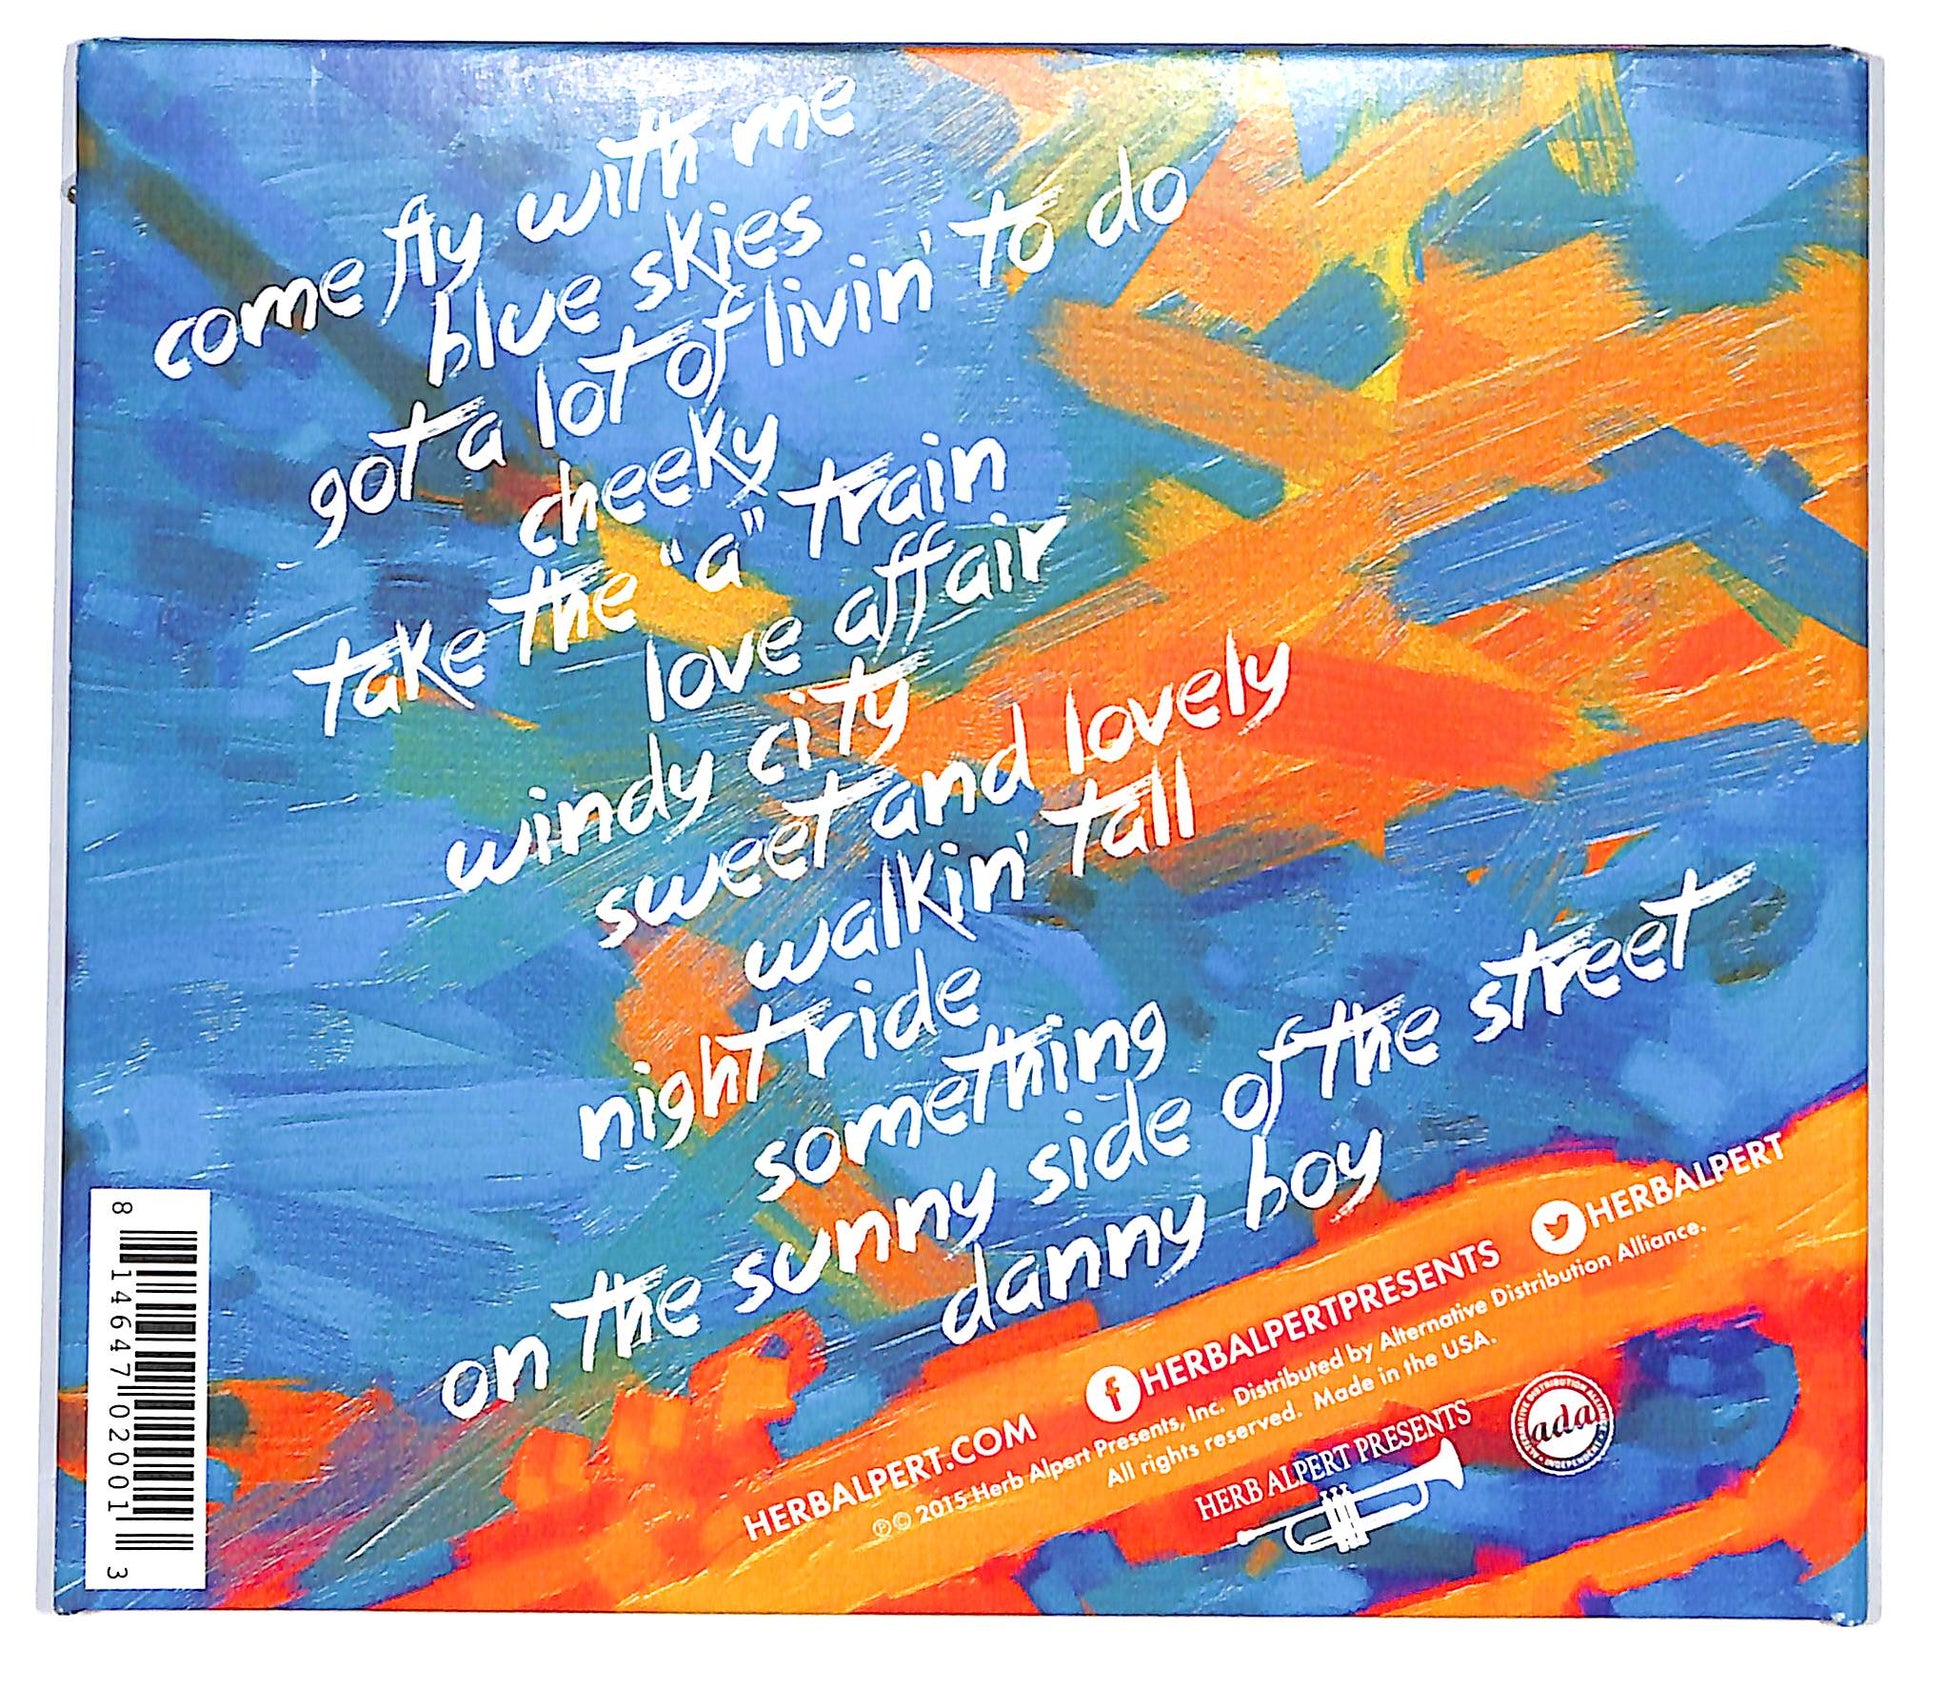 come fly with me
blue skies
got a lot of livin' to do
cheeky
take the "a" train
love affair
windy city
sweet and lovely
walkin' tall
night ride
something
on the sunny side of the street
danny boy
HERBALPERT.COM f HERBALPERTPRESENTS HERBALPERT
℗© 2015 Herb Alpert Presents, Inc. Distributed by Alternative Distribution Alliance.
All rights reserved. Made in the USA.
HERB ALPERT PRESENTS
ada
8 14647 02001 3